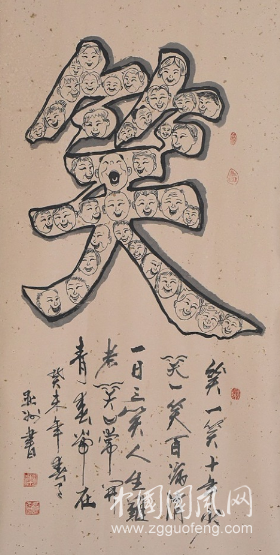 笑
笑一笑十年少
笑一笑百病消
一日三笑人生难
老笑口常开
青春常在
癸未年春
书
中国国风网
www.zgguofeng.com